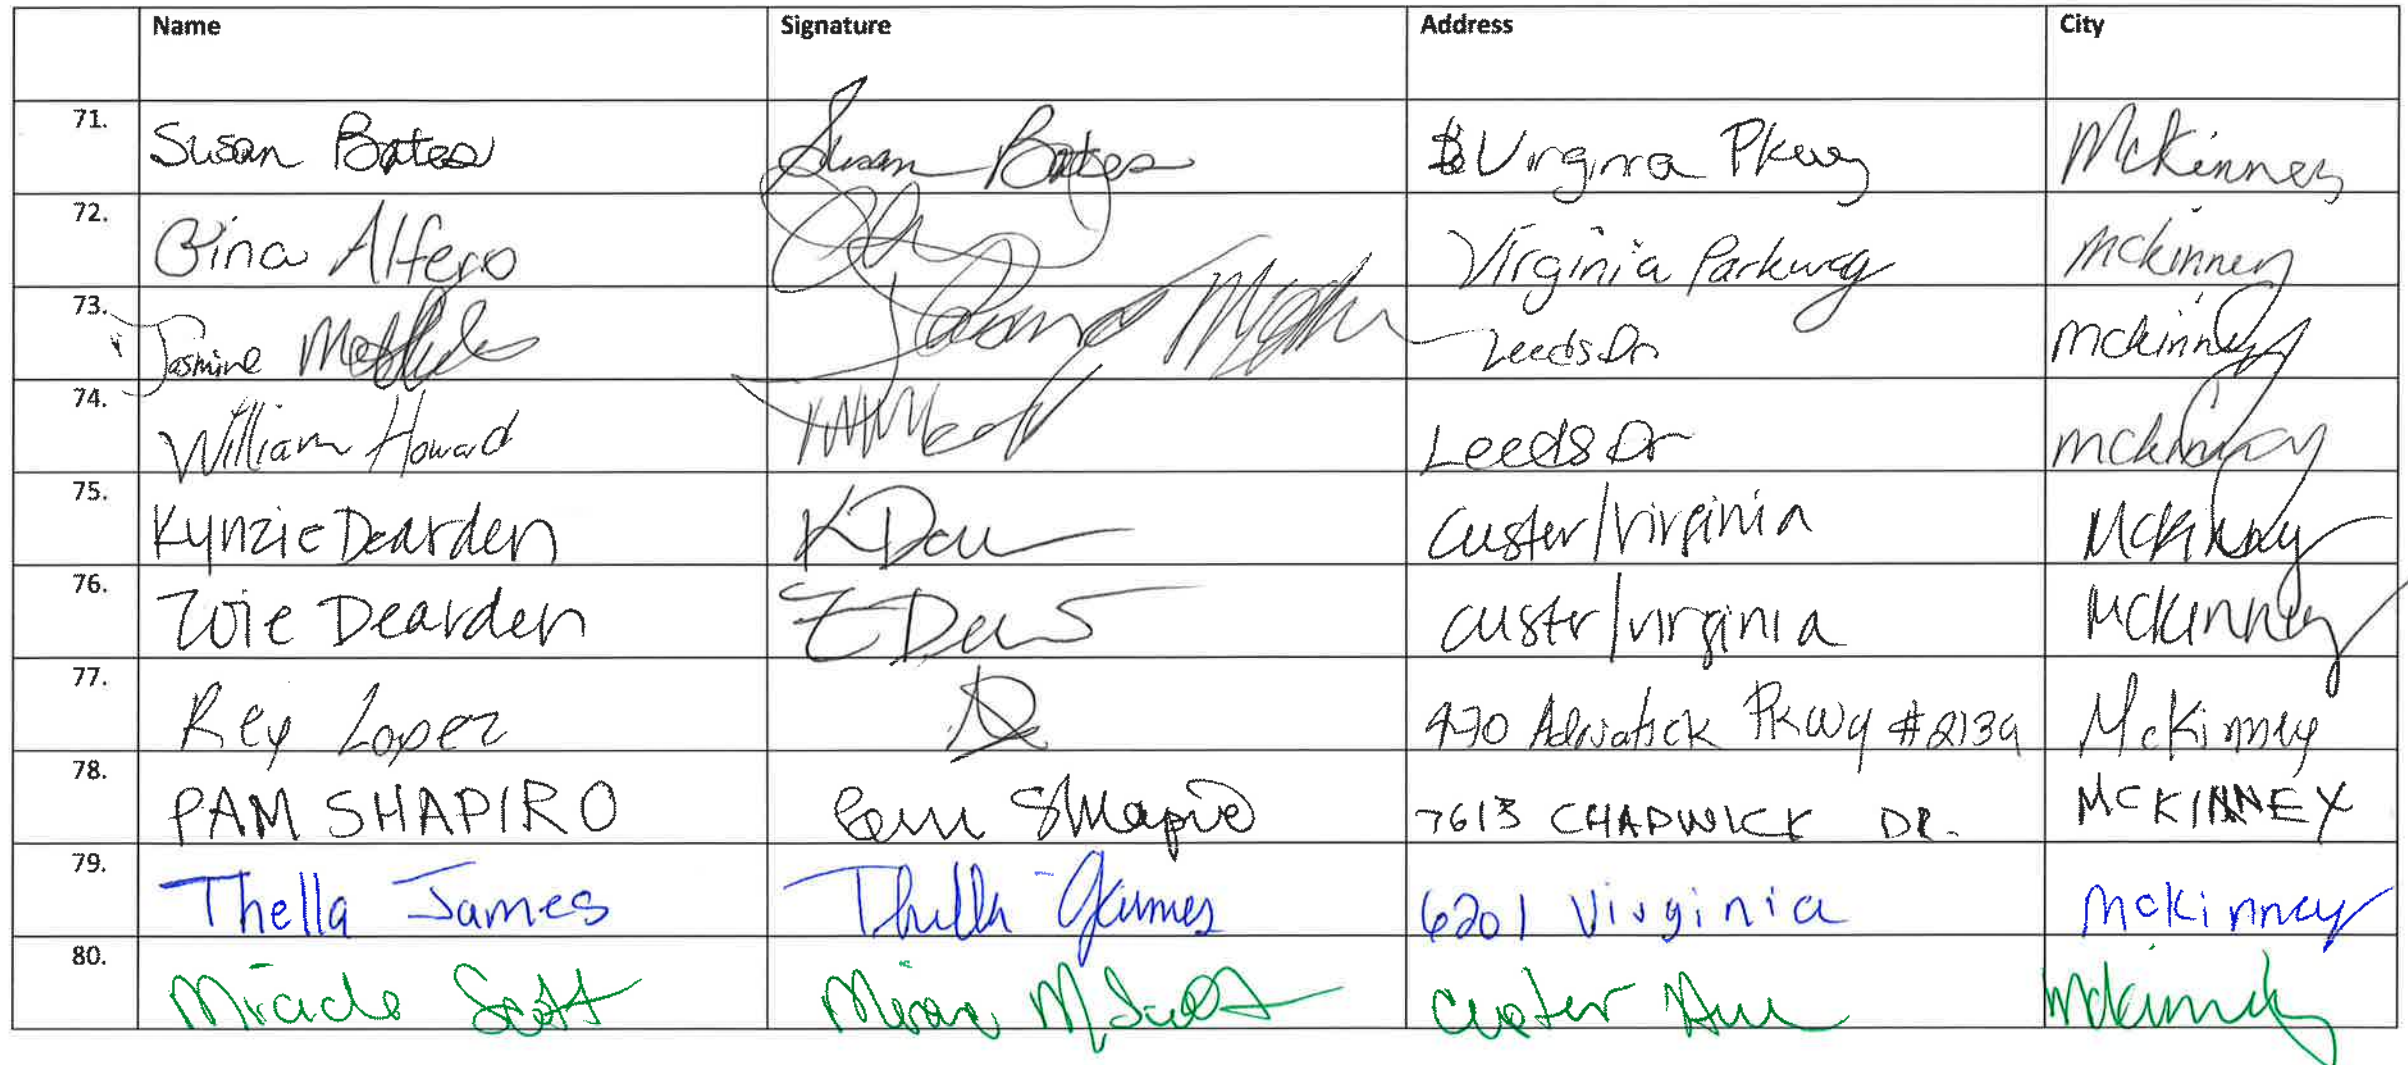 Name Signature Address City
71. Susan Bates Susan Bates Virginia Pkwy McKinney
72. Gina Alfero Virginia Parkway Mckinney
73. Jasmine Leeds Dr Mckinney
74. William Howard Leeds Dr Mckinney
75. Kynzie Dearden K Dea Custer/Virginia McKinney
76. Zoie Dearden Z Dea custer/virginia McKinney
77. Rey Lopez 470 Adriatick Pkwy #2139 McKinney
78. PAM SHAPIRO Pam Shapiro 7613 CHADWICK DR. MCKINNEY
79. Thella James Thella James 6201 Virginia McKinney
80. Miracle Scott M Scott Custer Ave Mckinney